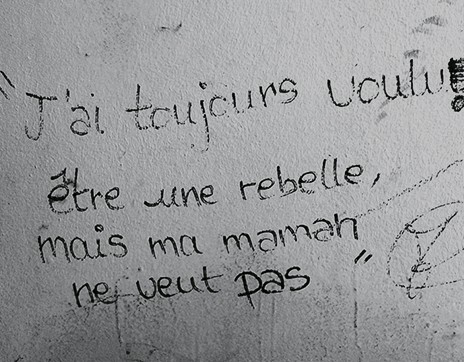 "J'ai toujours voulu
être une rebelle,
mais ma maman
ne veut pas"